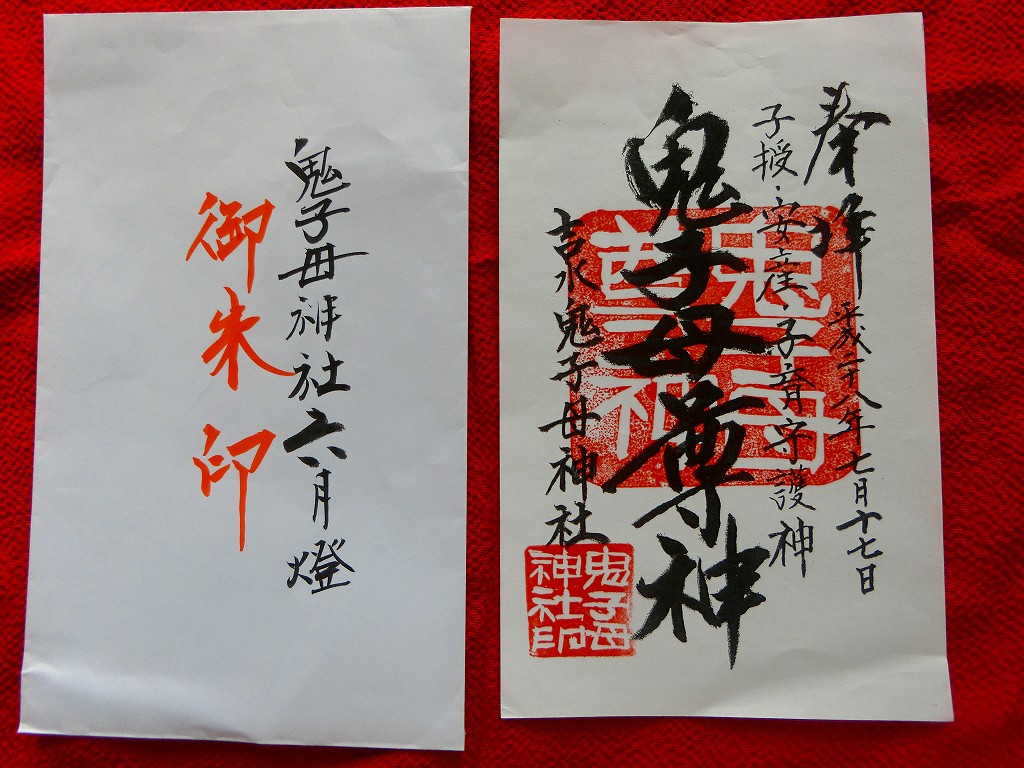 鬼子母神社六月燈
御朱印
奉拝 平成二十八年七月十七日
子授・安産・子育守護神
鬼子母尊神
吉水鬼子母神社
鬼子母
尊神
鬼子母
神社印